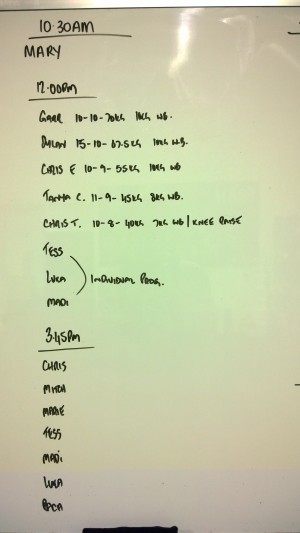 10.30AM
MARY
12.00PM
10-10-70KG 10KG WB.
DYLAN 15-10-67.5KG 10KG WB.
CHRIS F 10-9-55KG 10KG WB
TANYA C. 11-9-45KG 8KG WB.
CHRIS T. 10-8-40KG 7KG WB / KNEE RAISE
TESS
LUCA INDIVIDUAL PROG.
MADI
3.45PM
CHRIS
MITCH
MARIE
TESS
MADI
LUCA